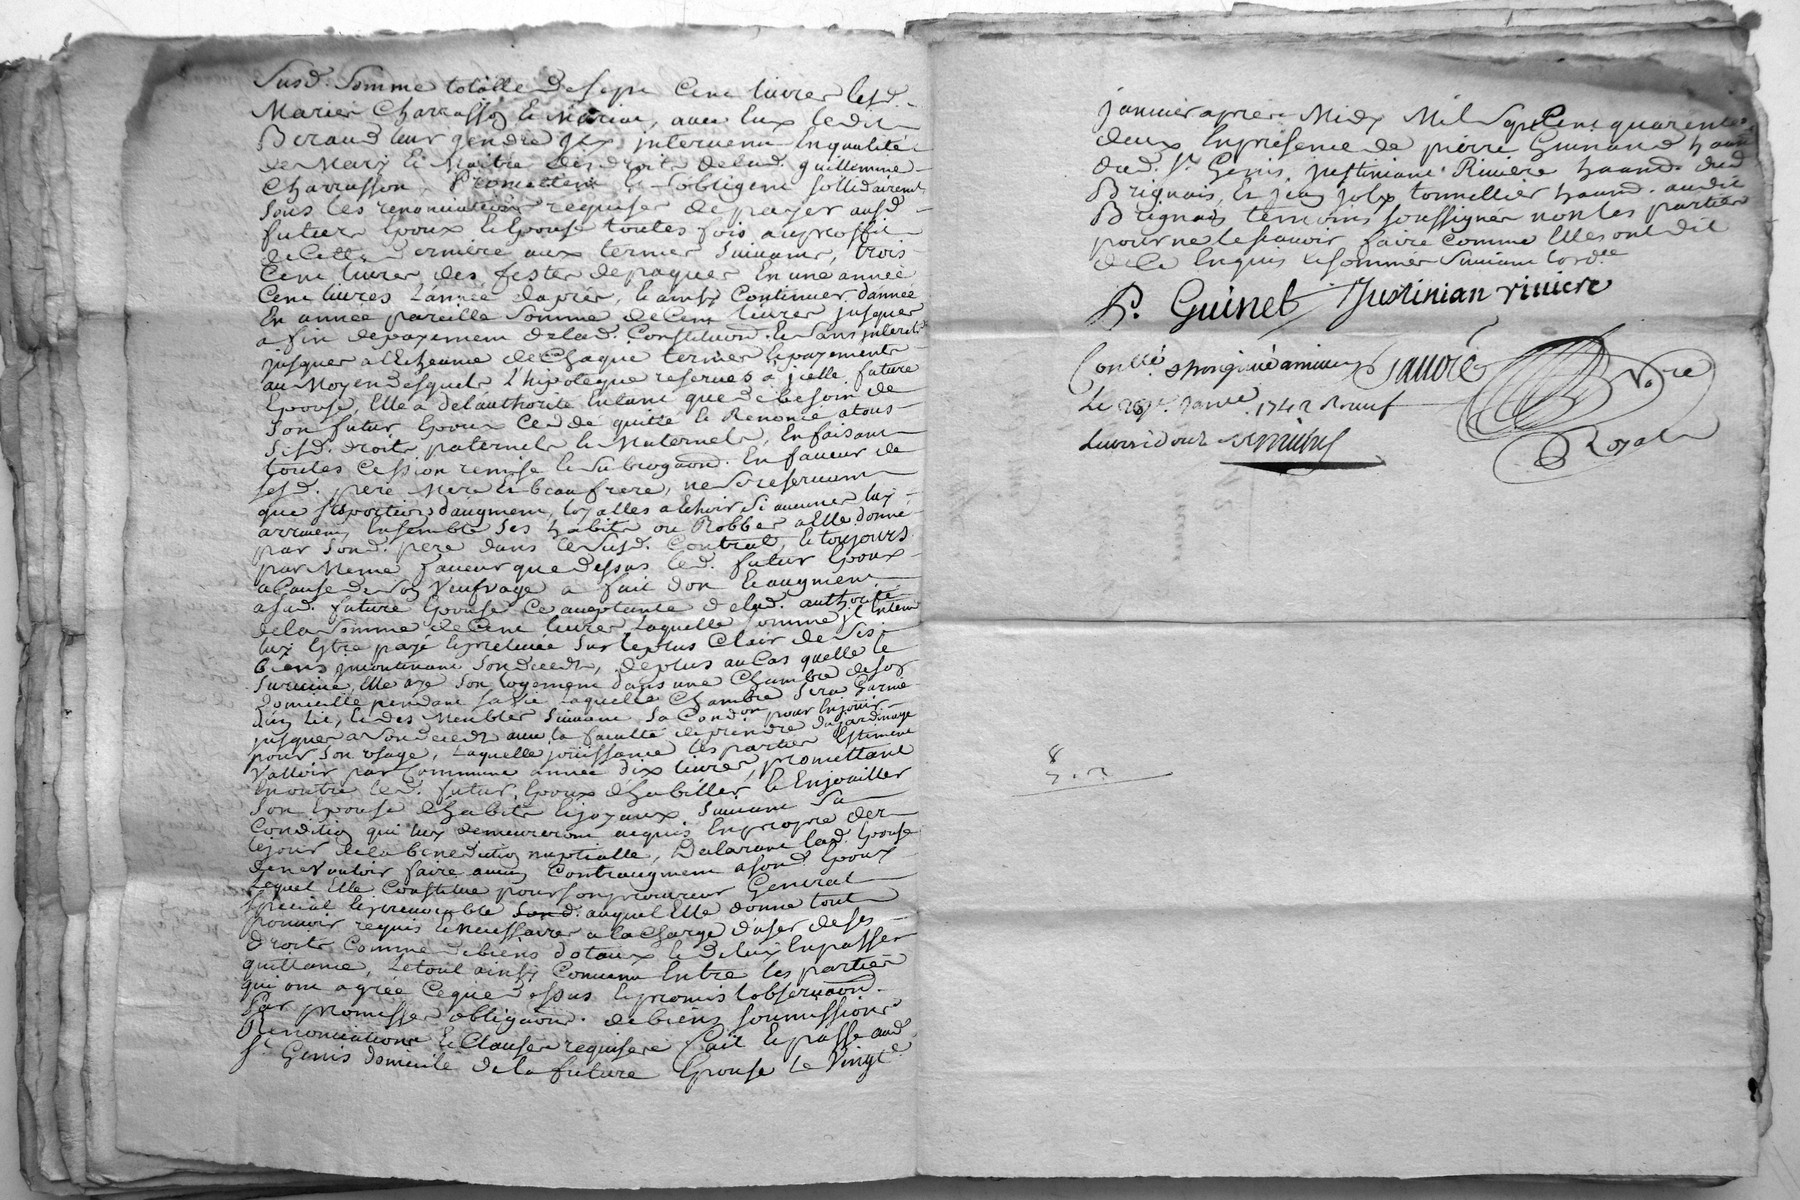 Susd. Somme totalle de sept Cent livres lesd.
Mariés Charrasson et        , avec Eux ledit
Beraud leur gendre jcy intervenu En qualité
de Mary Et Maitre des droits de lad. guillemine
Charrasson, Promettent et s'obligent sollidairemt
sous les renonciations requises de payer ausd
futurs Epoux et Epouse toutes fois au proffit
de Cette derniere aux termes Suivants, trois
Cent livres des festes de paques En une année
Cent livres L'année d'après, et ainsy Continuer d'année
En année pareille Somme de Cent livres jusques
a fin de payement de lad. Constitution. Et Sans interet
jusques a l'Echeance de Chaque terme, et payements
au Moyen desquels L'hipoteque reservés a jcelle future
Epouse, Elle a de l'authorité Entant que de besoin de
Son futur Epoux Cedé quitté et Renoncé a tous
Sesd. droits paternels et Maternels, En faisant
toutes Cession remise et Subrogaôn. En faveur de
sesd. pere Mere Et beau frere, ne se reservant
que ses portions d'augment, loyalles a Echoir Si aucunes luy
arrivent, Ensemble Ses habits ou Robbes a Elle donné
par Sond. pere dans le Susd. Contrat, et toujours
par Meme faveur que dessus led. futur Epoux
a Cause de Son Veufvage a fait don Et augment
a sad. future Epouse Ce acceptante de lad. authorité
de la Somme de Cent livres laquelle Somme jl Entend
luy Estre payé et prelevée Sur le plus Clair de Ses
biens jncontinent Son deceds, de plus au Cas quelle le
Survive, Elle aye Son logement dans une Chambre de Son
domicille pendant Sa Vie, Laquelle Chambre Sera Garnie
d'un lit, et des Meubles Suivant Sa Condon pour En jouir
jusques a Son deceds avec la faculté de prendre du jardinage
pour Son Vsage, Laquelle joüissance les parties Estiment
Valloir par Commune année dix livres, promettant
En outre led. futur Epoux d'habiller et Enjoailler
Son Epouse d'habits et joyaux Suivant Sa
Condition qui luy demeureront acquis En propre des
le jour de la benediction nuptialle, Declarant lad. Epouse
de ne Vouloir faire aucun Contraugment a Sond. Epoux
Lequel Elle Constitue pour son procureur General
special et jrrevocable Sond. auquel Elle donne tout
pouvoir requis et necessaires a la Charge d'user de ses
droits Comme de biens dotaux et de luy En passer
quittance, Le tout ainsy Convenu Entre les parties
qui ont agrée Ce que dessus et promis l'observaôn.
Par promesses obligaôns. de biens soumissions
Renonciations et Clauses requises Fait et passé aud
St. Genis domicile de la future Epouse le Vingte
janvier après Midy Mil Sept Cent quarente
deux En présence de pierre Guinand haant
dud. St. Genis, justiniane Riviere haand. dud
Brignais, et jean joly tonnellier haand. audit
Brignais temoins soussignes non les parties
pour ne le scavoir faire comme Elles ont dit
de Ce Enquis et sommes Suivant l'ord.ce
P. Guinet Justinian riviere
Conllé. a Mornant Sauvré No.re
Le 28e. janve. 1742 Receu neuf Royal
livres douze
8